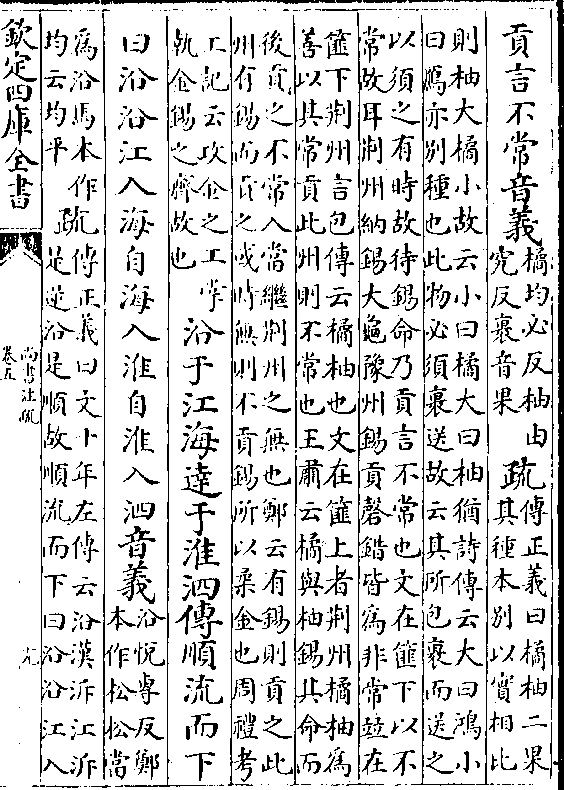 貢言不常音義橘均必反柚由
究反裹音果疏傳正義曰橘柚二果
其種本別以實相比
則柚大橘小故云小曰橘大曰柚猶詩傳云大曰鴻小
曰鴈亦別種也此物必須裹送故云其所包裹而送之
以須之有時故待錫命乃貢言不常也文在篚下以不
常故耳荆州納錫大龜豫州錫貢磬錯皆為非常並在
篚下荆州言包傳云橘柚也文在篚上者荆州橘柚為
善以其常貢此州則不常也王肅云橘與柚錫其命而
後貢之不常入當繼荆州之無也鄭云有錫則貢之此
州有錫而貢之或時無則不貢錫所以柔金也周禮考
工記云攻金之工掌
執金錫之齊故也沿于江海達于淮泗傳順流而下
曰沿沿江入海自海入淮自淮入泗音義沿悅專反鄭
本作松松當
為沿馬本作
均云均平疏傳正義曰文十年左傳云沿漢泝江泝
是逆沿是順故順流而下曰沿沿江入
欽定四庫全書
尚書注疏
卷五